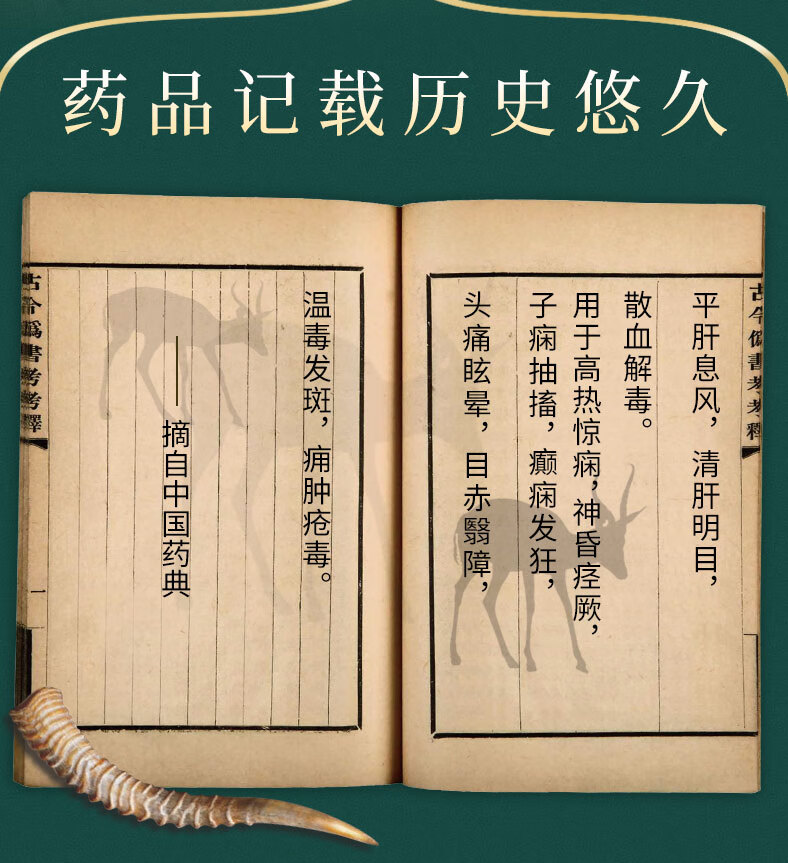 药品记载历史悠久
平肝息风，清肝明目，
散血解毒。
用于高热惊痫，神昏痉厥，
子痫抽搐，癫痫发狂，
头痛眩晕，目赤翳障，
温毒发斑，痈肿疮毒。
——摘自中国药典
古今僞書考考釋
古今僞書考考釋
一